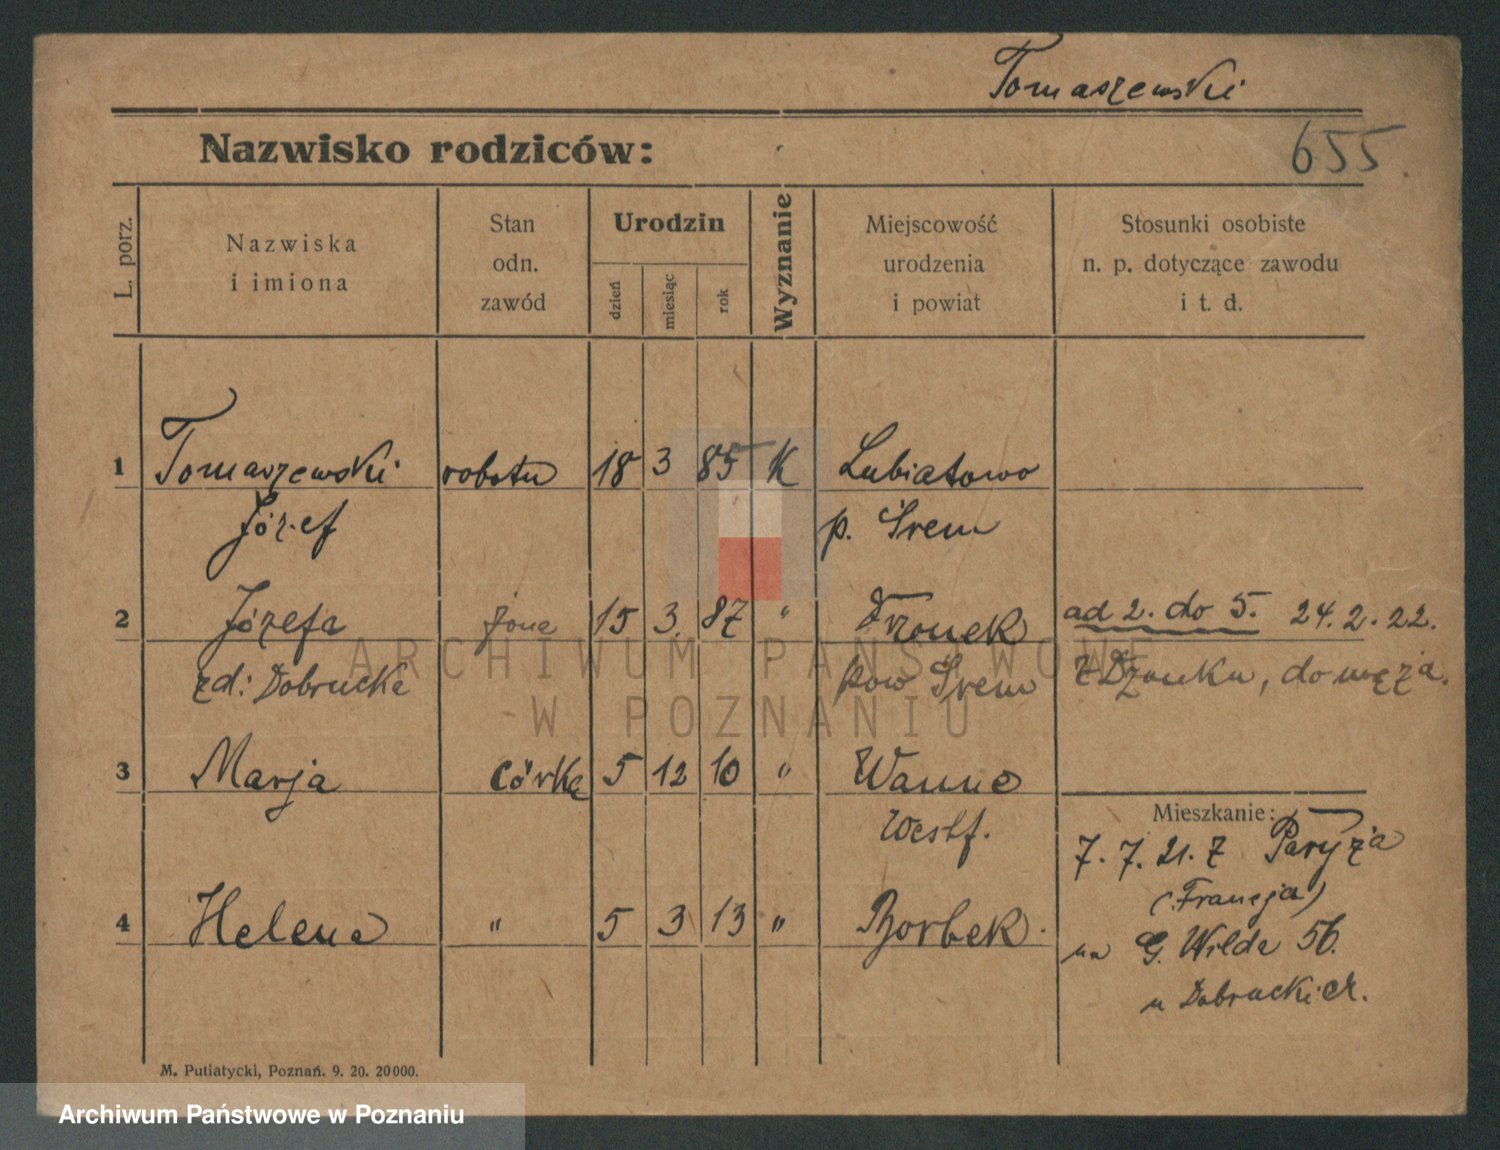 Tomaszewski
Nazwisko rodziców:
655
L. porz.
Nazwiska
i imiona
Stan
odn.
zawód
Urodzin
dzień
miesiąc
rok
Wyznanie
Miejscowość
urodzenia
i powiat
Stosunki osobiste
n. p. dotyczące zawodu
i t. d.
1 Tomaszewski robotn 18 3 85 K Lubiatowo
Józef p. Śrem
2 Józefa żona 15 3. 87 " ad 2. do 5. 24.2.22.
zd: Dobrucka pow Śrem z Dzonku, do męża.
3 Marja córka 5 12 10 " Wanne
Westf.
Mieszkanie:
7. 7. 21. z Paryża
(Francja)
4 Helena " 5 3 13 " Borbek.
na G. Wilda 56.
u Dobruckich.
M. Putiatycki, Poznań. 9. 20. 20000.
ARCHIWUM PAŃSTWOWE
W POZNANIU
Archiwum Państwowe w Poznaniu